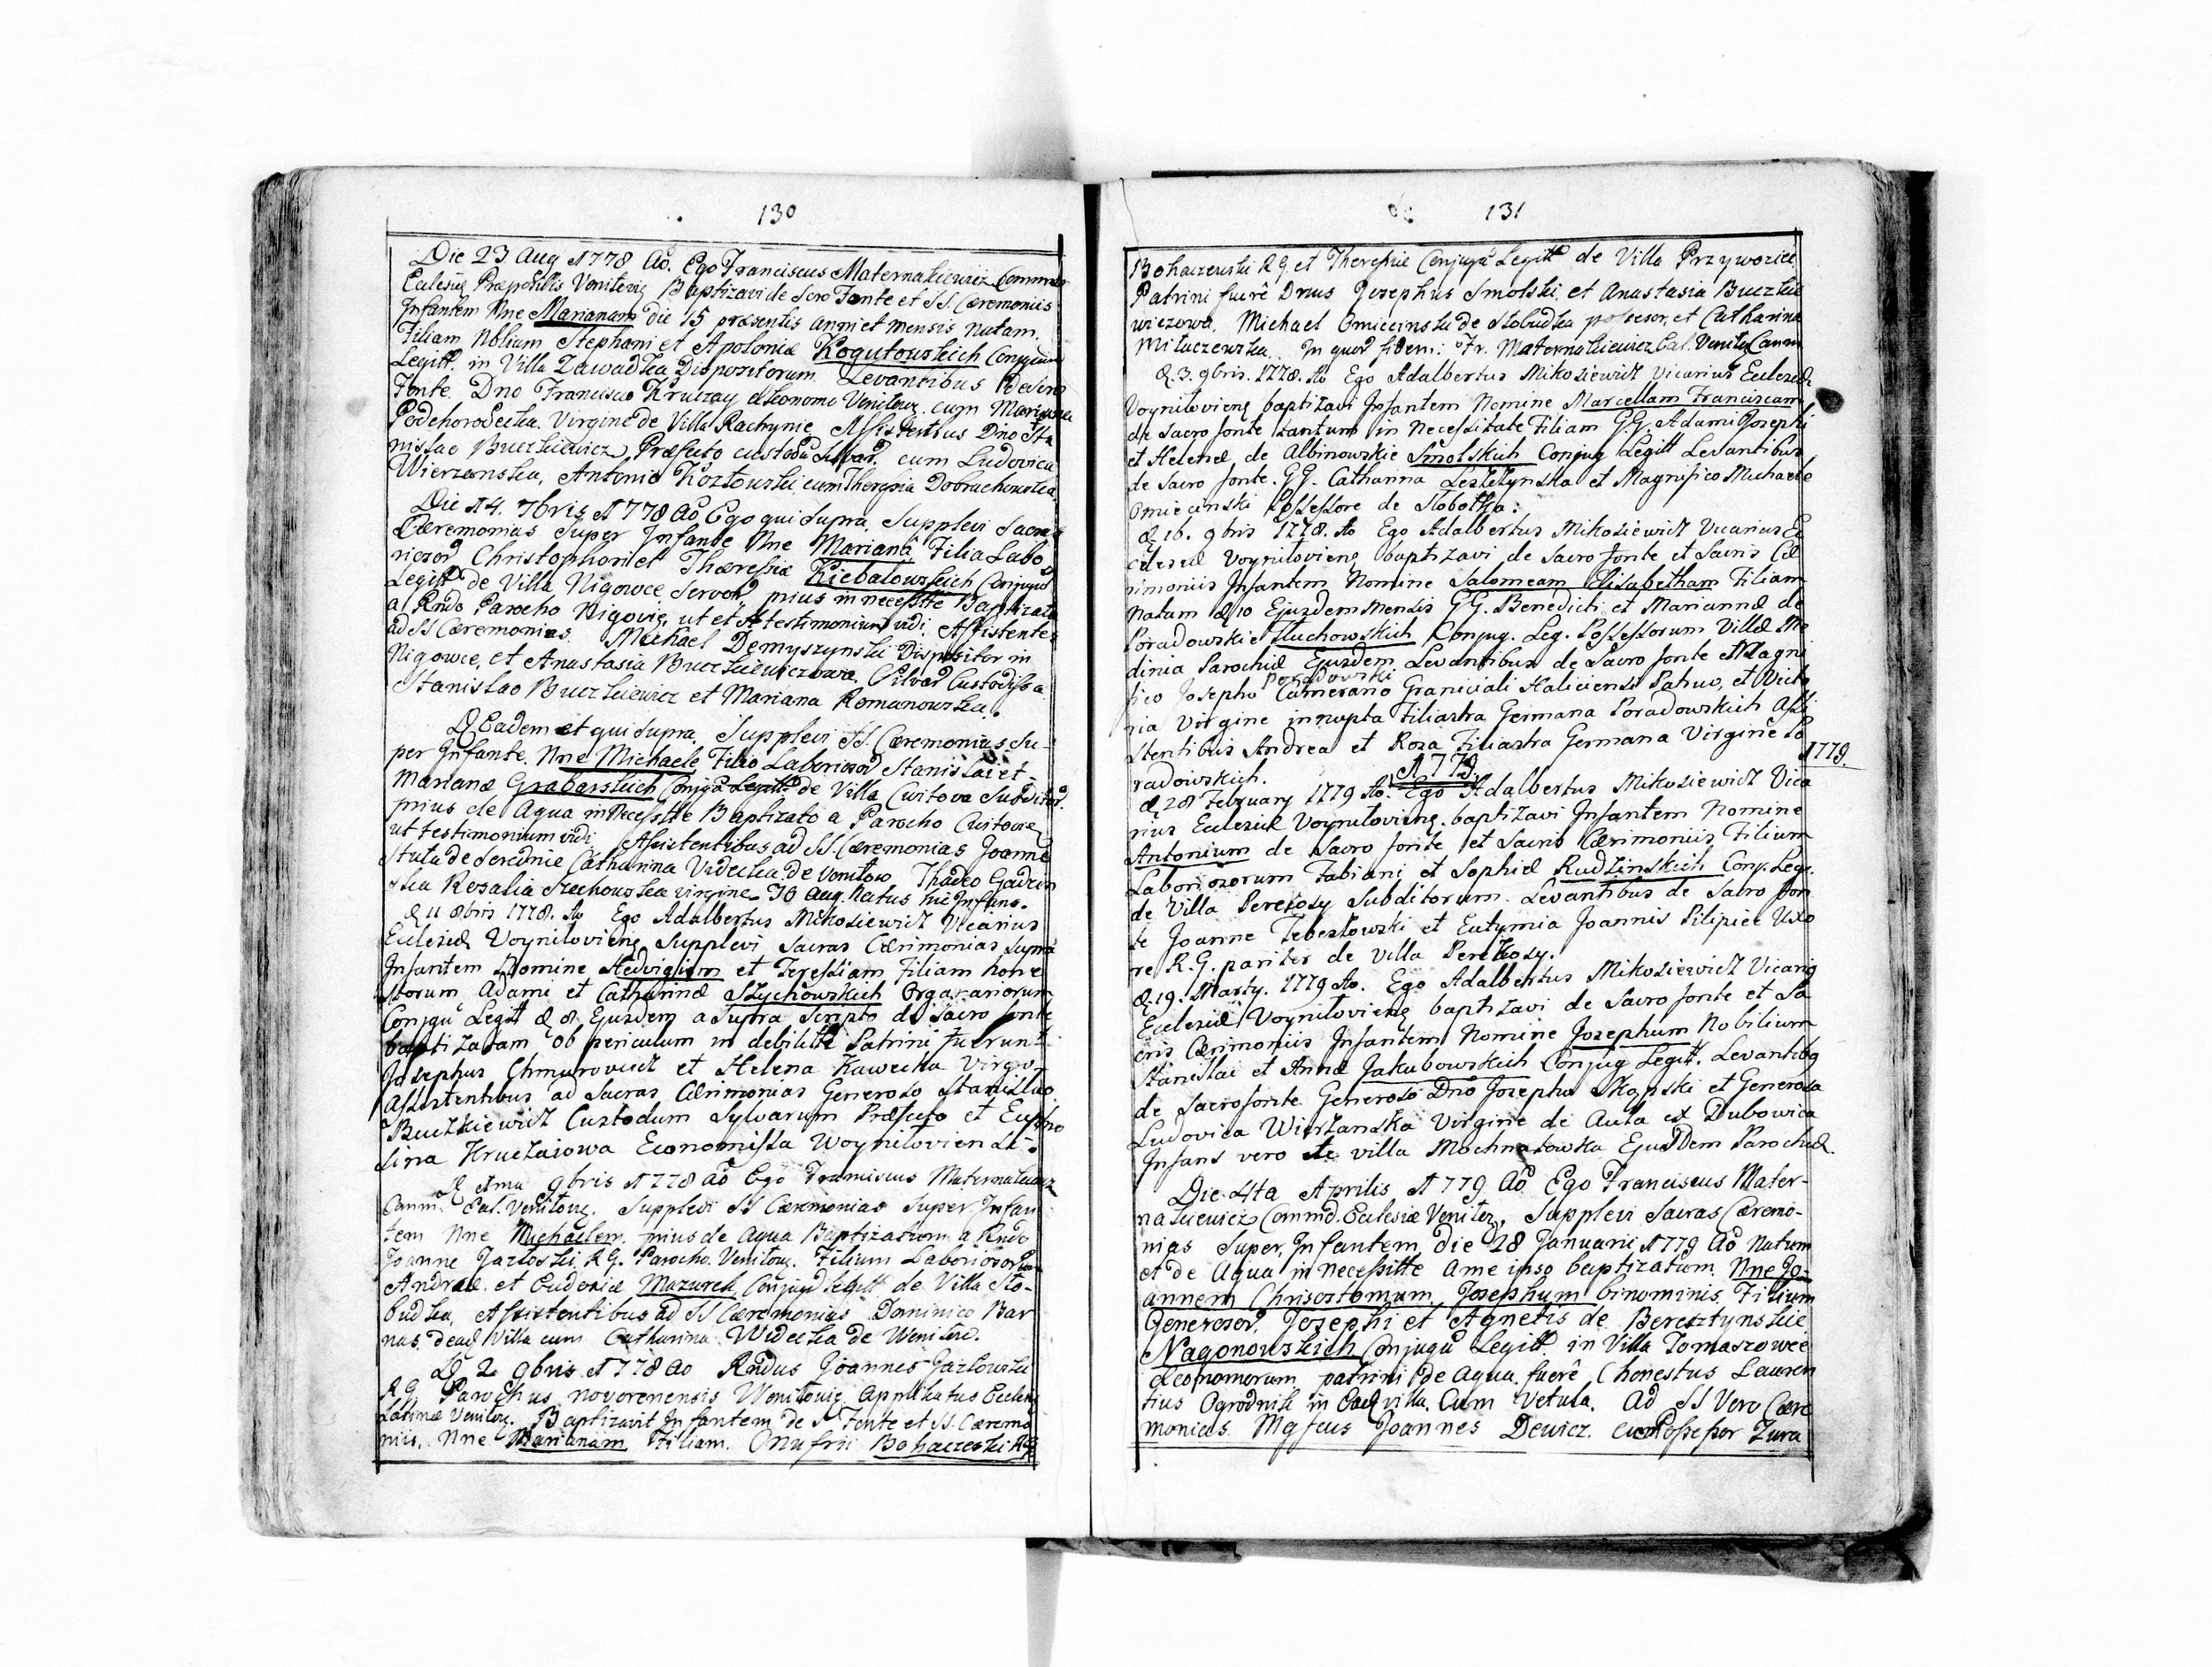 130
Die 23 Aug 1778 Ao. Ego Franciscus Maternakiewicz Commen
Eclesię Præpttlis Venitovię Baptizavi de Scro Fonte et SS. Cæremoniis
Infantem Nne Marianam die 15 præsentis anni et mensis natam.
Filiam Nobilium Stephani et Apoloniæ Kogutowskich Conjgum
Legitt. in Villa Zawadka Dispozitorum Levantibus de Scro
Fonte Dno Francisco Kruczay Ekonomo Venitow. cum Maryanna
Podehorodecka Virgine de Villa Rachynie Assistentbus Dno Sta
nislao Buczkiewicz Præfecto custodu Silvar. cum Ludovica
Wierzanska, Antonio Kozłowski cum Theresia Dobrachowska
Die 14. 7bris 1778 Ao Ego qui supra, Supplevi Sacras
Cæremonias Super Infante Nne Marianâ Filia Labo
riosor Christophori et Thæressiæ Kiebalowskich Conjugu
Legitt de Villa Nigowce Servor prius in necessitte Baptizata
a Rndo Parocho Nigovię, ut et testimonium vidi. Assistentes
ad SS Cæremonias. Michael Demyszynski Dispositor in
Nigowce, et Anastasia Buczkiewiczowa Silvar Custodissa
Stanislao Buczkiewicz et Mariana Romanowska.
D Eadem et qui supra, Supplevi SS. Cæremonias Su-
per Infante Nne Michaele Filio Laboriosor Stanislai et
Marianæ Grabarskich Conjgu Legitt de Villa Cwitova Subditor.
prius de Aqua in Necesstte Baptizato a Parocho Cwitovię
ut testimonium vidi Assistentibus ad SS. Cæremonias Joanne
Stuta de Serednie Catharina Videcka de Venitow Thadeo Gadzin
ska Rosalia Szechowska virgine 30 Aug. Natus hic Infans.
D 11 8bris 1778. Ao Ego Adalbertus Mikosiewicz Vicarius
Ecclesiæ Voynilovieng Supplevi Sacras Cærimonias supra
Infantem Nomine Hedvigiam et Teressiam Filiam hone
storum Adami et Catharinæ Szychowskich Organariorum
Conjgu Legitt D 8 Ejusdem a supra scripto de Sacro fonte
baptizatam ob periculum in debilitte Patrini fuerunt
Josephus Chmurovicz et Helena Kawecka Virgo,
Assistentibus ad Sacras Cærimonias Generoso Stanislao
Buczkiewicz Custodum Sylvarum Præfecto et Euphro
sina Kruczaiowa Economissa Woynilovien Lt.
D 1ma 9bris 1778 Ao Ego Franciscus Maternakiewicz
Comm. Ecl. Venitovię. Supplevi SS Cæremonias Super Infan
tem Nne Michaelem prius de aqua Baptizatum a Rndo
Joanne Jazłoski R.G. Parocho Venitow. Filium Laboriosorum
Andreæ et Eudoxiæ Mazurek Conjugu Legitt de Villa Sto-
budka, Assistentibus ad SS Cæremonias Dominico Bar
nas dead Villa cum Catharina Widecka de Wenitow.
D 2 9bris 1778 Ao Rndus Joannes Jazłowski
R.G. Parochus novorenensis Wenitovię Applikatus Ecclesię
Latinæ Venitov. Baptizavit Infantem de S Fonte et SS. Cæremo
niis. Nne Marianam Filiam Onufrii Bohaczeski RG
131
Bohaczewski RG et Theresiæ Conjugu Legitt de Villa Przywoziec
Patrini fuerê Dnus Josephus Smolski et Anastasia Buczkie
wiczowa, Michael Omiecinski de Slobudka possesor, et Catharina
Miłaczewska. In quor fidem: Fr. Maternakiewicz Ecl. Venitov Comm
D. 3. 9bris. 1778. Ao Ego Adalbertus Mikosiewicz Vicarius Ecclesiæ
Voynilovieng baptizavi Infantem Nomine Marcellam Franciscam
de Sacro fonte tantum in Necessitate Filiam G.G. Adami Josephi
et Helenæ de Albinowskie Smolskich Conjug Legitt Levantibus
de Sacro fonte. GG. Catharina Leszczynska et Magnifico Michaele
Omiecinski Possessore de Slobotka.
D 16. 9bris 1778. Ao Ego Adalbertus Mikosiewicz Vicarius Ec
clesiæ Voynilovieng baptizavi de Sacro fonte et Sacris Cæ
rimoniis Infantem Nomine Salomeam Elisabetham Filiam
Natam D 10 Ejusdem Mensis GG. Benedicti et Mariannæ de
Poradowskie Tluchowskich Conjug. Leg. Possessorum Villæ Me
dinia Parochiæ Ejusdem Levantibus de Sacro fonte Magni
fico Josepho Poradowski Camerario Graniciali Haliciensi Patruo, et Victo
ria Virgine innupta Filiastra Germana Poradowskich Assi
stentibus Andrea et Roza Filiastra Germana Virgine Po
radowskich.
1779.
1779.
D 28 February 1779 Ao. Ego Adalbertus Mikosiewicz Vica
rius Ecclesiæ Voynilovieng. baptizavi Infantem Nomine
Antonium de Sacro fonte et Sacris Cærimoniis Filium
Laboriosorum Fabiani et Sophiæ Rudzinskich Conj. Leg.
de Villa Perekosy Subditorum. Levantibus de Sacro fon
te Joanne Tebeszłowski et Eutymia Joannis Pilipiec Uxo
re R.G. pariter de villa Perekosy.
D. 19. Marty. 1779 Ao. Ego Adalbertus Mikosiewicz Vicarig
Ecclesiæ Voynilovieng baptizavi de Sacro fonte et Sa
cris Cærimoniis Infantem Nomine Josephum Nobilium
Stanislai et Annæ Jakubowskich Conjug Legitt. Levantibg
de Sacro fonte Generoso Dno Josepho Skopski et Generosa
Ludovica Wierzanska Virgine de Aula ex Dubowica
Infans vero de villa Mochnatowka Ejusdem Parochiæ.
Die 4ta Aprilis 1779 Ao Ego Franciscus Mater-
nakiewicz Commd. Eclesiæ Venitov, Supplevi Sacras Cæremo-
nias Super Infantem die 28 Januarii 1779 Ao Natum
et de Aqua in necessitte a me ipso baptizatum. Nne Jo-
annem Chrisostomum, Josephum binominis Filium
Generosor. Josephi et Agnetis de Beresztynskie
Nagonowskich Conjugu Legitt. in Villa Tomaszowce
Æconomorum, patrini de aqua fuerê (honestus Lauren
tius Ogrodnik in Ead villa Cum Vetula. Ad SS Vero Cære
monias. Mgfcus Joannes Dewicz. Possessor Zura